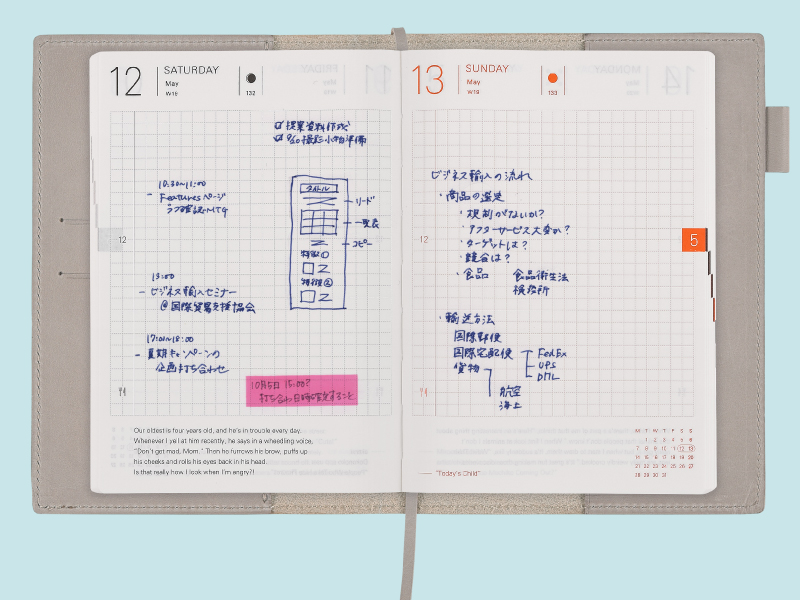 12 SATURDAY
May
W18
132
提案資料作成
撮影小物準備
10:30~11:00
- Featuresページ
ラフ確認MTG
タイトル
リード
一覧表
コピー
特徴①
特徴②
12
13:00
- ビジネス輸入セミナー
@国際貿易支援協会
17:00~18:00
- 夏期キャンペーンの
企画打ち合わせ
10月5日 15:00?
打ち合わせ日時確定すること
Our oldest is four years old, and he's in trouble every day.
Whenever I yell at him recently, he says in a wheedling voice,
"Don't get mad, Mom." Then he furrows his brow, puffs up
his cheeks and rolls his eyes back in his head.
Is that really how I look when I'm angry?!
13 SUNDAY
May
W19
133
ビジネス輸入の流れ
・商品の選定
・規制がないか?
・アフターサービス大変か?
・ターゲットは?
・競合は?
・食品 食品衛生法
検疫所
12
5
・輸送方法
国際郵便
国際宅配便 FedEx
UPS
DHL
貨物
航空
海上
"Today's Child"
M T W T F S S
1 2 3 4 5 6
7 8 9 10 11 12 13
14 15 16 17 18 19 20
21 22 23 24 25 26 27
28 29 30 31